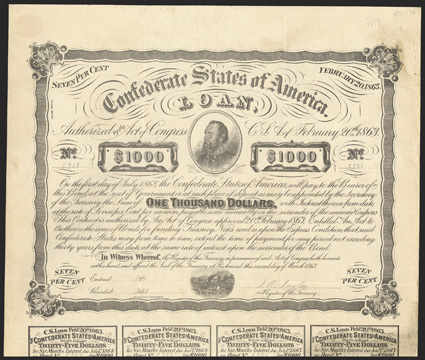 SEVEN PER CENT
FEBRUARY 20, 1863.
Confederate States of America
LOAN,
Authorized by Act of Congress C.S.A. of February 20th 1863.
No. $1000 $1000 No.
On the first day of July 1868, the Confederate States of America, will pay to the Bearer of
this Bond, at the seat of Government or at such place of deposit as may be appointed by the Secretary
of the Treasury the Sum of ONE THOUSAND DOLLARS, with Interest thereon from date
at the rate of Seven per Cent per annum, payable semi annually on the surrender of the annexed Coupons
This Contract is authorized by An Act of Congress approved February 20th 1863. Entitled An Act to
Authorize the issue of Bonds for funding Treasury Notes and is upon the Express Condition, that said
Confederate States may from time to time, extend the time of payment for any period not exceeding
thirty years from this date at the same rate of interest upon the surrender of this Bond.
In Witness Whereof, the Register of the Treasury in pursuance of said Act of Congress, hath hereunto
set his hand and affixed the Seal of the Treasury at Richmond this second day of March 1863.
SEVEN PER CENT
Entered
Recorded
Register of the Treasury
SEVEN PER CENT
C.S. Loan Feb. 20th 1863. C.S. Loan Feb. 20th 1863. C.S. Loan Feb. 20th 1863. C.S. Loan Feb. 20th 1863.
THE CONFEDERATE STATES OF AMERICA THE CONFEDERATE STATES OF AMERICA THE CONFEDERATE STATES OF AMERICA THE CONFEDERATE STATES OF AMERICA
THIRTY-FIVE DOLLARS THIRTY-FIVE DOLLARS THIRTY-FIVE DOLLARS THIRTY-FIVE DOLLARS